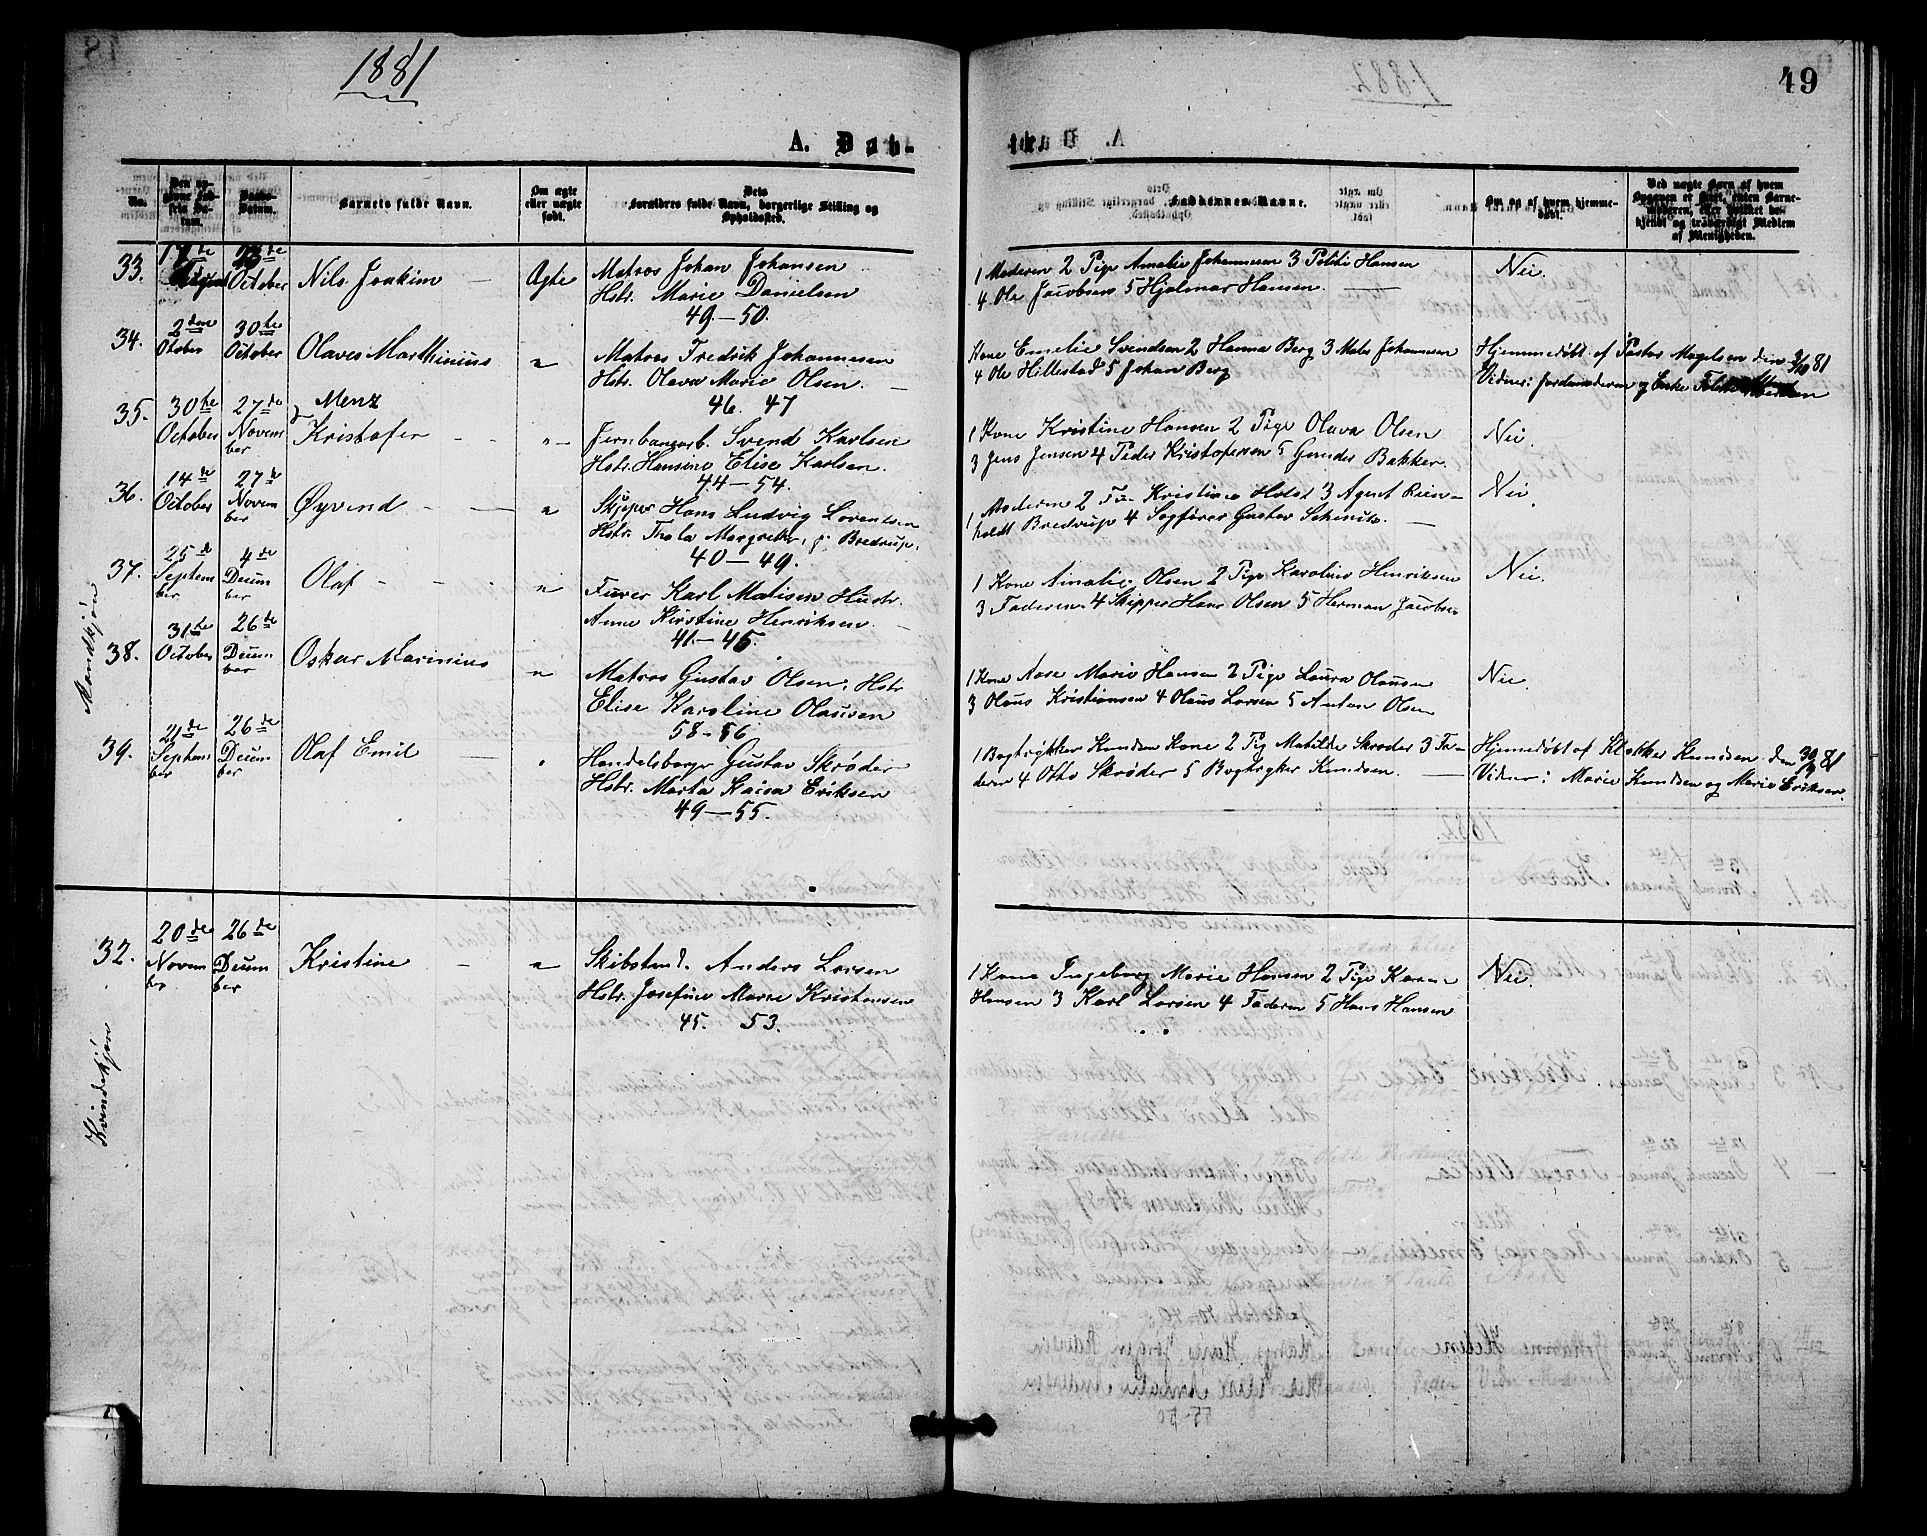 1881
49
A. Dåb.
No.
Den opgivne Fødsels Datum.
Daabs-Datum.
Barnets fulde Navn.
Om ægte eller uægte født.
Dets Forældres fulde Navn, borgerlige Stilling og Opholdssted.
Faddernes Navne.
Om og af hvem hjemmedøbt.
Ved uægte Børn af hvem Opgaven er skeet, enten Barnemoderen, eller hvilket bekjendt og troværdigt Medlem af Menigheden.
Mandkjøn
33. 17de 23de
August October Nils Joakim — Ægte Matros Johan Johansen
Hstr. Marie Danielsen
49-50.
1 Moderen 2 Pige Amalie Johannesen 3 Petter Hansen
4 Ole Jacobsen 5 Hjalmar Hansen. —
Nei.
34. 2den 30te
October October Olaves Marthinius " Matros Fredrik Johannesen
Hstr. Olava Marie Olsen. —
46. 47
Kone Emelie Svendsen 2 Hanna Berg 3 Mats Johannesen
4 Ole Hillestad 5 Johan Berg
Hjemmedøbt af Pastor Magelsen den 3/10 81
Vidner: Jordemoderen og Enke
35. 30te 27de Menz
October November Kristofer - - " - Jernbanearb. Svend Karlsen
Hstr. Hansine Elise Karlsen.
44-54.
1 Kone Kristine Hansen 2 Pige Olava Olsen
3 Jens Jensen 4 Peder Kristofersen 5 Gunder Bakker.
Nei.
36. 14de 27de
October November Øyvend - — " Skipper Hans Ludvig Lorentsen
Hstr. Thala Margrethe, f. Bredrup.
40-49.
1 Moderen 2 Kristine Holst 3 Agent Rien-
holdt Bredrup 4 Sagfører Gustav —
Nei.
37. 25de 4de
September December Olaf - - - " Furer Karl Matisen Hustr.
Anne Kirstine Henriksen. —
41-45.
1 Kone Amalie Olsen 2 Pige Karoline Henriksen
3 Faderen 4 Skipper Hans Olsen 5 Herman Jacobsen
Nei.
38. 31te 26de
October December Oskar Marinius " Matros Gustav Olsen. Hstr
Elise Karoline Olausen
58-56
1 Kone Aase Marie Hansen 2 Pige Laura Olausen
3 Olaus Kristiansen 4 Olaus Larsen 5 Anton Olsen
Nei.
39. 21de 26de
September December Olaf Emil — " Handelsborger Gustav Skrøder
Hstr. Marta Kaisa Eriksen
49-55.
1 Bogtrykker Knudsen Kone 2 Pig Matilde Skrøder 3 Fa-
deren 4 Otto Skrøder 5 Bogtryker Knudsen. —
Hjemmedøbt af Klokker Knudsen. den 30/9 81
Vidner: Marie Knudsen og Marie Eriksen.
Kvindekjøn
32. 20de 26de
November December Kristine - " Skibstend. Anders Larsen
Hstr. Josefine Marie Kristensen
45. 53.
1 Kone Ingeborg Marie Hansen 2 Pige Karen
Hansen 3 Karl Larsen 4 Faderen 5 Hans Hansen
Nei.